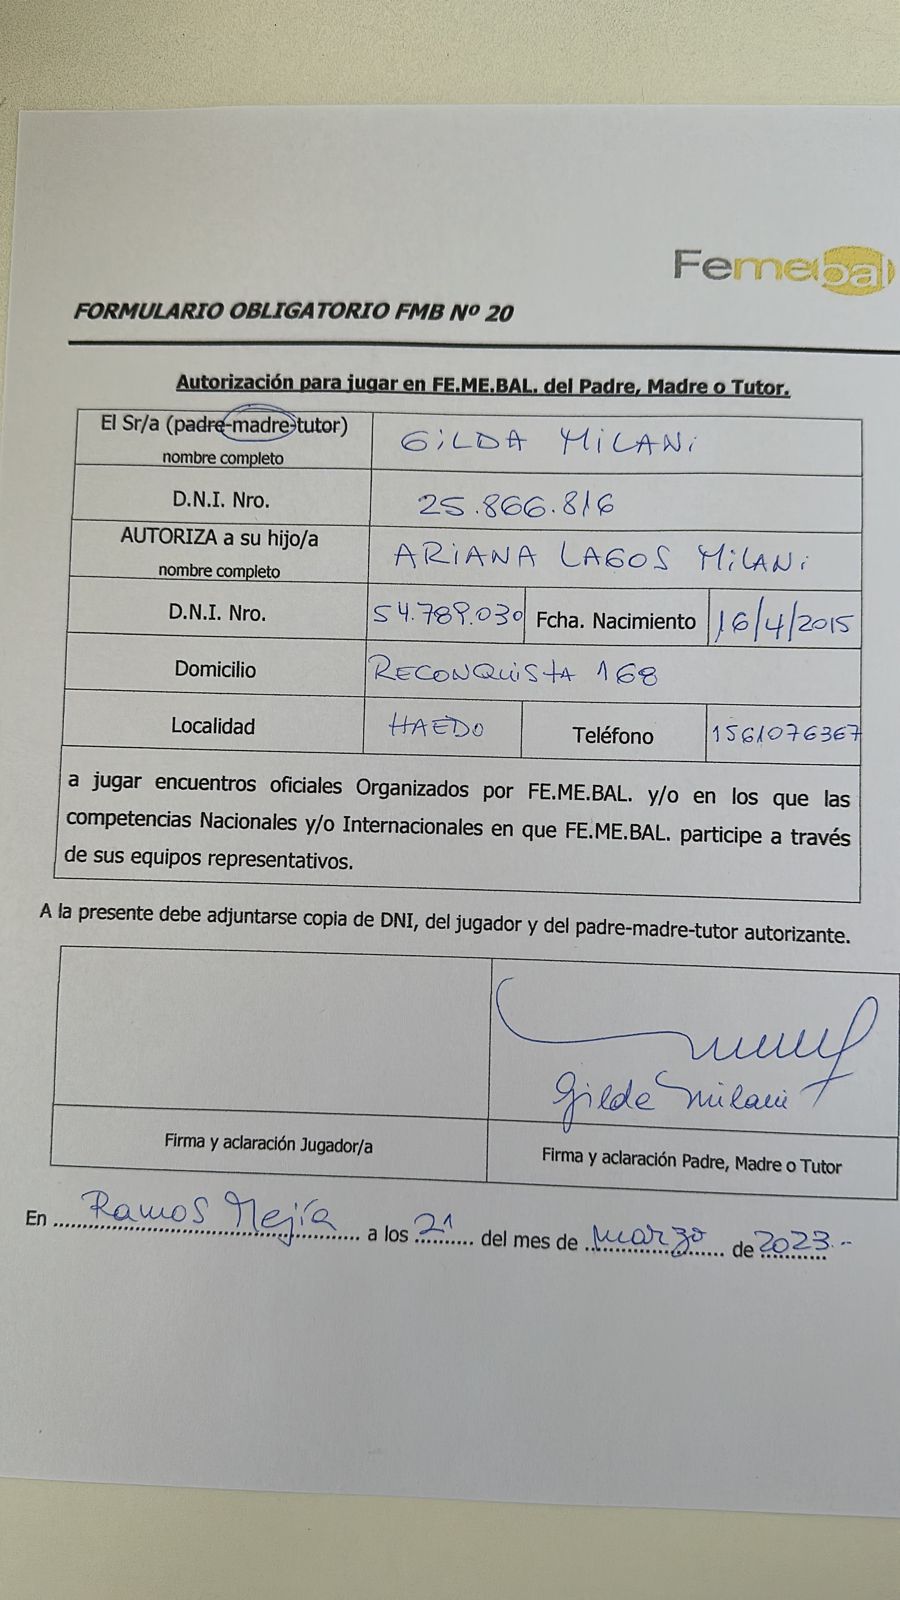 Femebal
FORMULARIO OBLIGATORIO FMB Nº 20
Autorización para jugar en FE.ME.BAL. del Padre, Madre o Tutor.
El Sr/a (padre-madre-tutor) GILDA MILANI
nombre completo
D.N.I. Nro. 25.866.816
AUTORIZA a su hijo/a ARIANA LAGOS MILANI
nombre completo
D.N.I. Nro. 54.789.030 Fcha. Nacimiento 16/4/2015
Domicilio RECONQUISTA 168
Localidad HAEDO Teléfono 1561076367
a jugar encuentros oficiales Organizados por FE.ME.BAL. y/o en los que las
competencias Nacionales y/o Internacionales en que FE.ME.BAL. participe a través
de sus equipos representativos.
A la presente debe adjuntarse copia de DNI, del jugador y del padre-madre-tutor autorizante.
Gilda Milani
Firma y aclaración Jugador/a Firma y aclaración Padre, Madre o Tutor
En Ramos Mejía a los 21 del mes de marzo de 2023.-